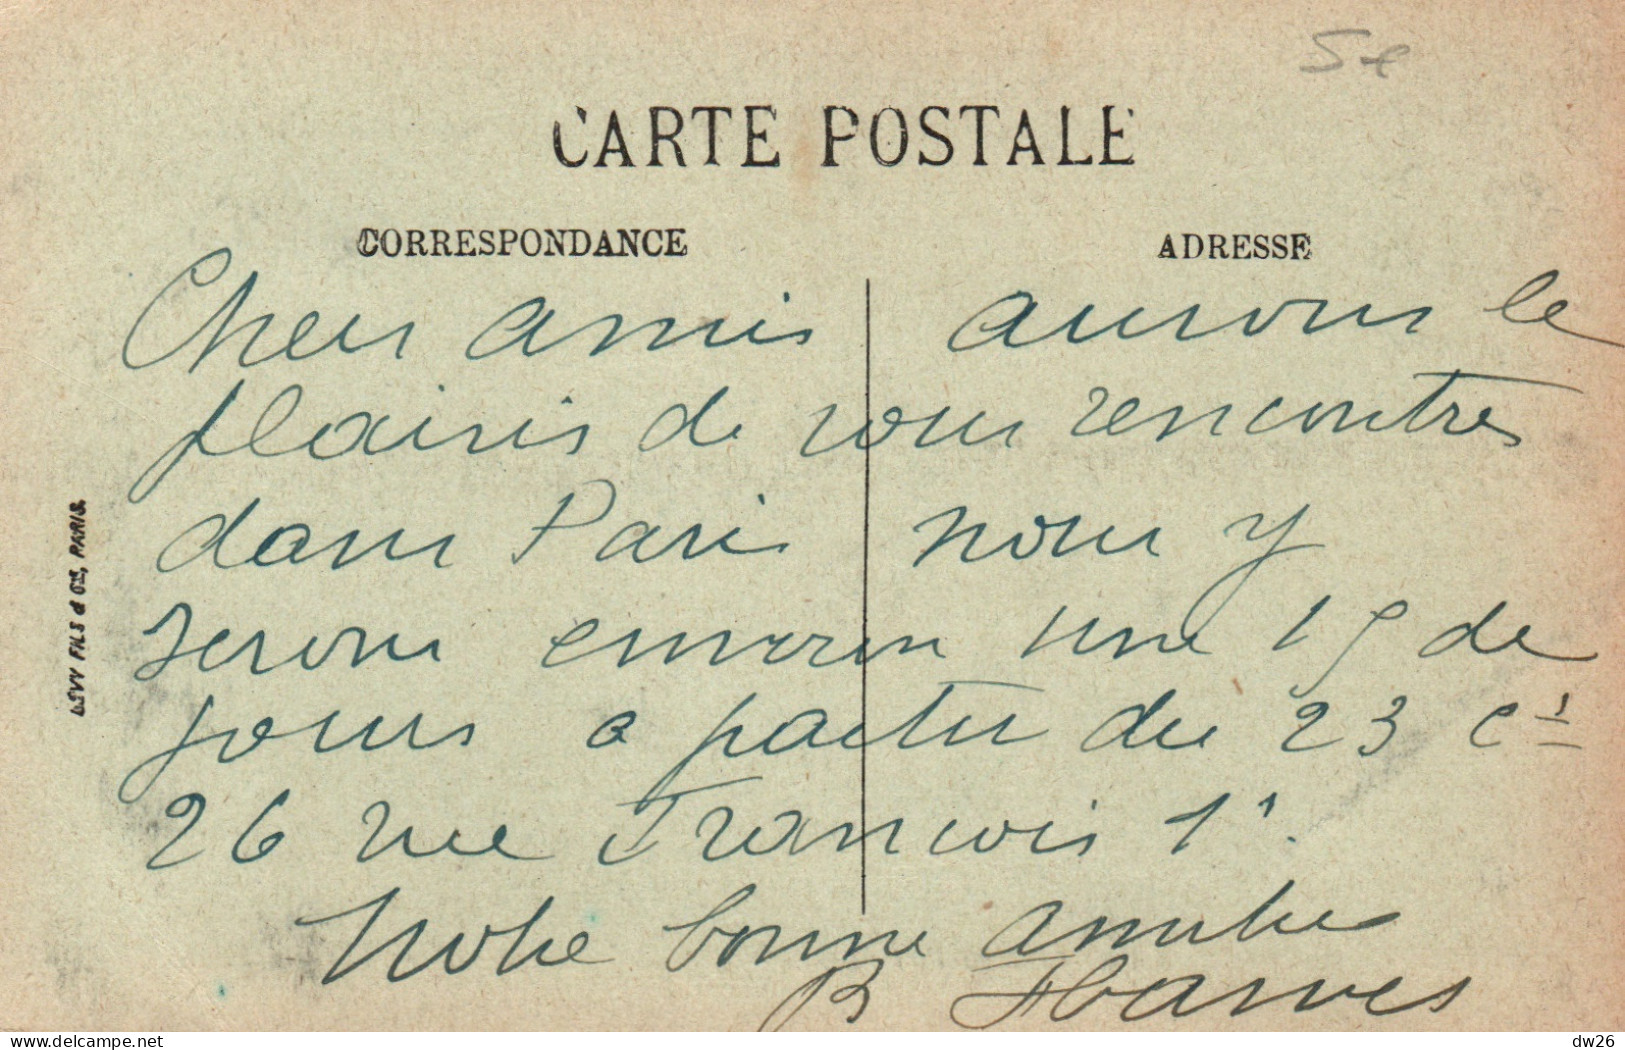 5€
CARTE POSTALE
CORRESPONDANCE
ADRESSE
LÉVY FILS & Cie, PARIS.
Chers amis aurons le
plaisir de vous rencontrer
dans Paris nous y
serons environ une 15 de
jours a partir du 23 ct
26 rue Francois 1er.
Notre bonne amitie
B
delcampe.net
dw26